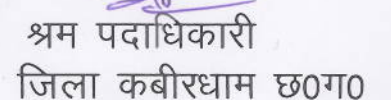 श्रम पदाधिकारी
जिला कबीरधाम छ0ग0